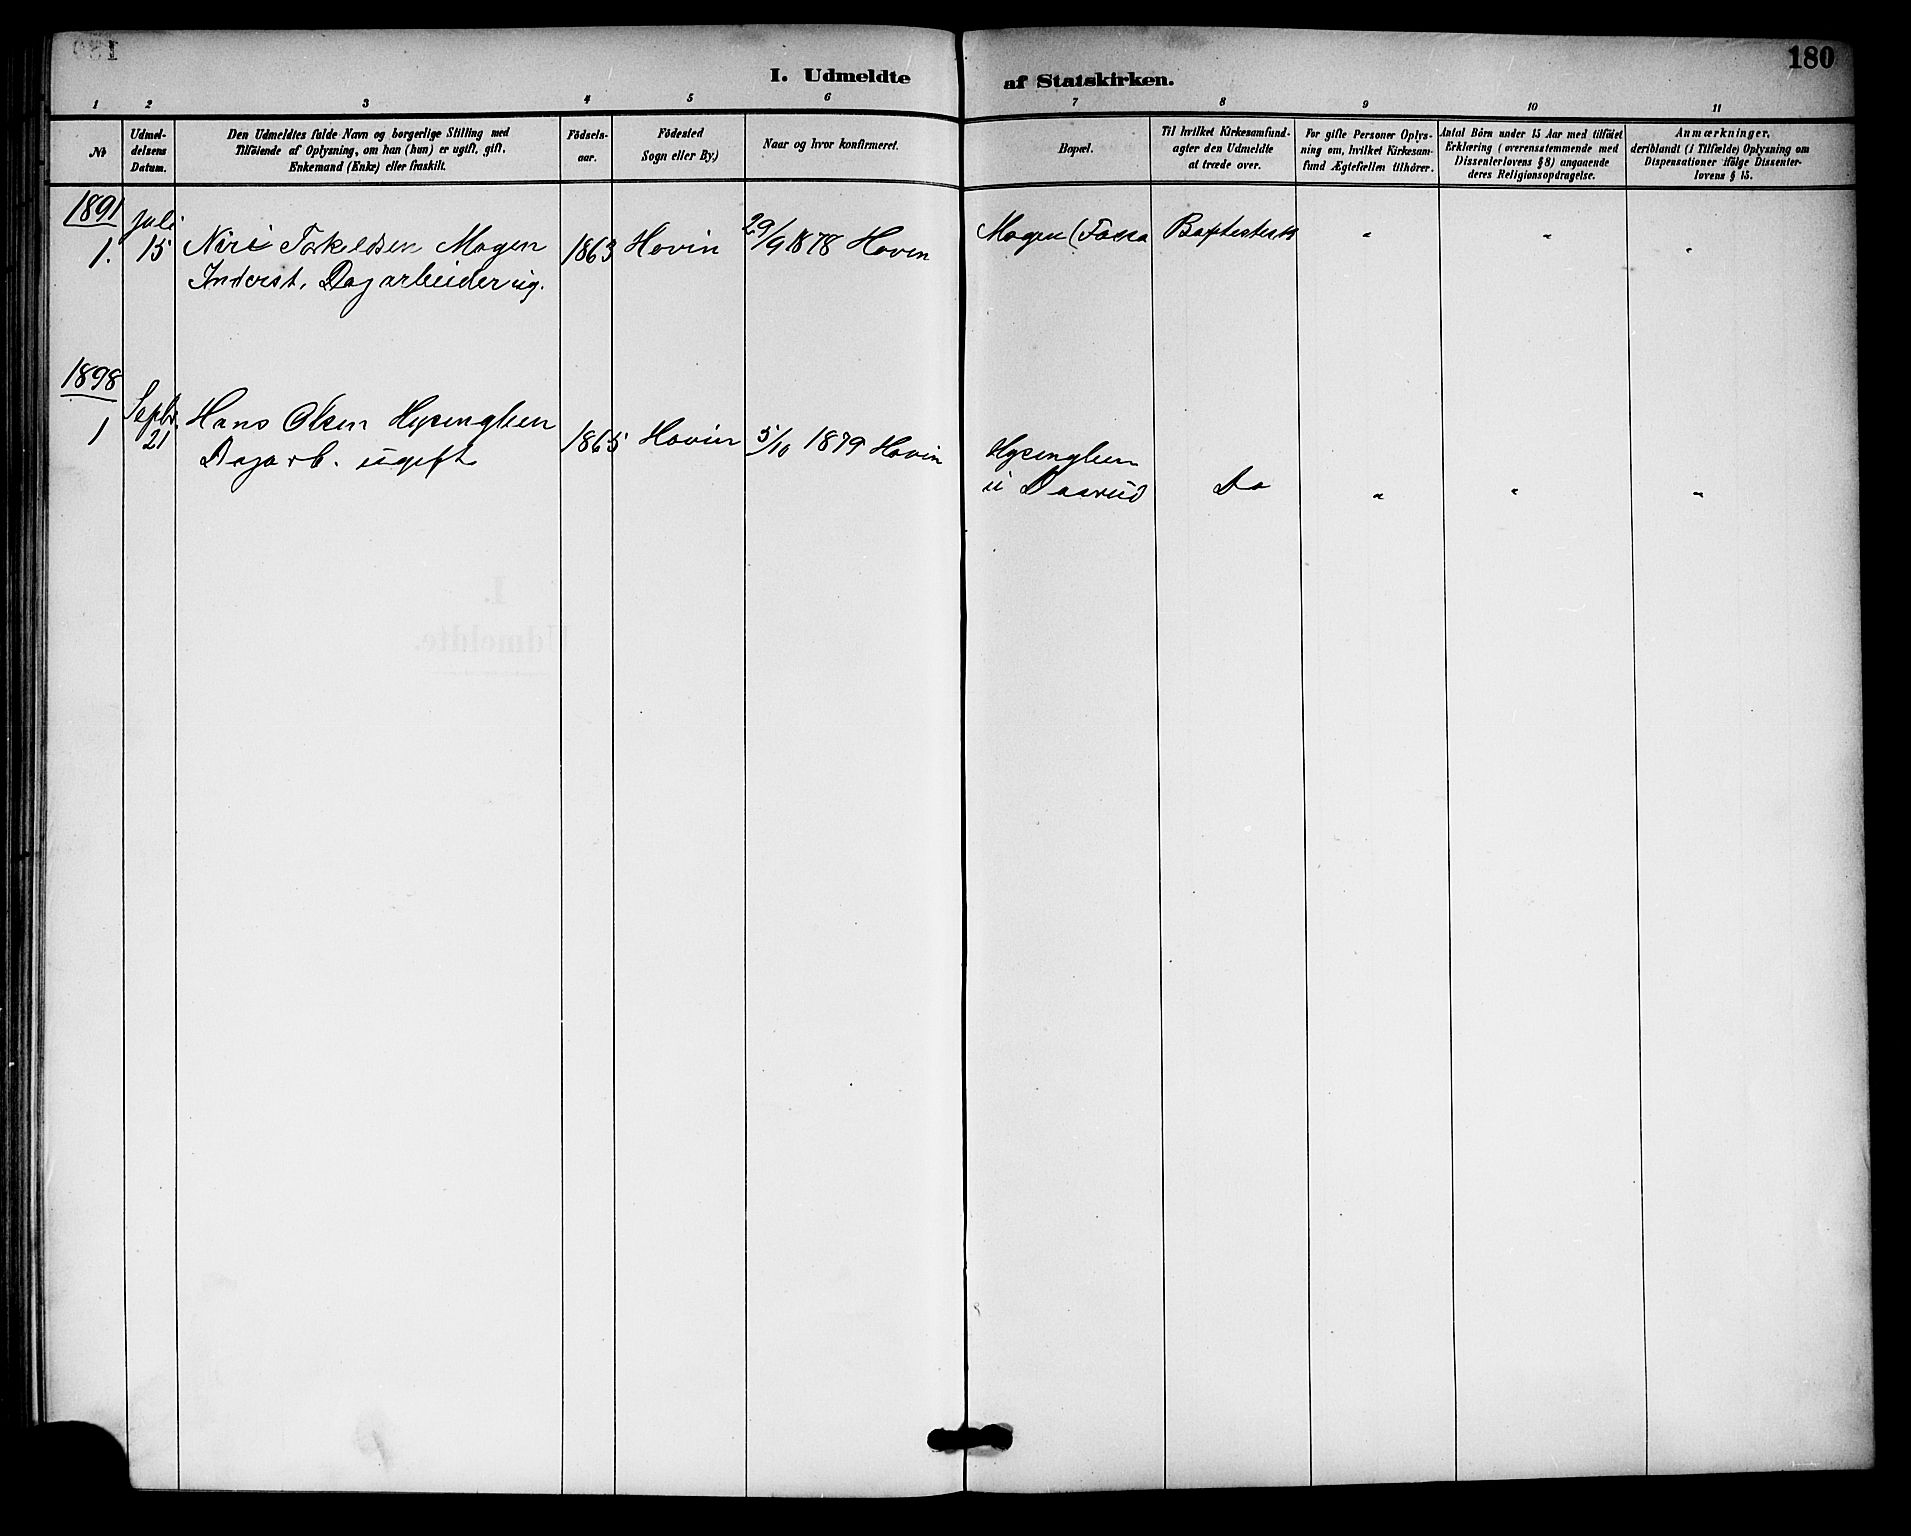 180
I. Udmeldte af Statskirken.
1 2 3 4 5 6 7 8 9 10 11
No
Udmel-
delsens
Datum.
Den Udmeldtes fulde Navn og borgerlige Stilling med
Tilföiende af Oplysning, om han (hun) er ugift, gift,
Enkemand (Enke) eller fraskilt.
Födsels-
aar.
Födested
Sogn eller By.)
Naar og hvor konfirmeret.
Bopæl.
Til hvilket Kirkesamfund-
agter den Udmeldte
at træde over.
For gifte Personer Oplys-
ning om, hvilket Kirkesam-
fund Ægtefællen tilhörer.
Antal Börn under 15 Aar med tilföiet
Erklæring (overensstemmende med
Dissenterlovens § 8) angaaende
deres Religionsopdragelse.
Anmærkninger,
deriblandt (i Tilfælde) Oplysning om
Dispensationer ifölge Dissenter-
lovens § 15.
1891
1.
Juli
15
Torkildsen Mogen
Inderst, Dagarbeider ug.
1863
Hovin
29/9 1878 Hovin
Mogen
" " "
1898
1
Septbr.
21
Hans Olsen
Dagarb. ugift
1865
Hovin
5/10 1879 Hovin
Do
" " "